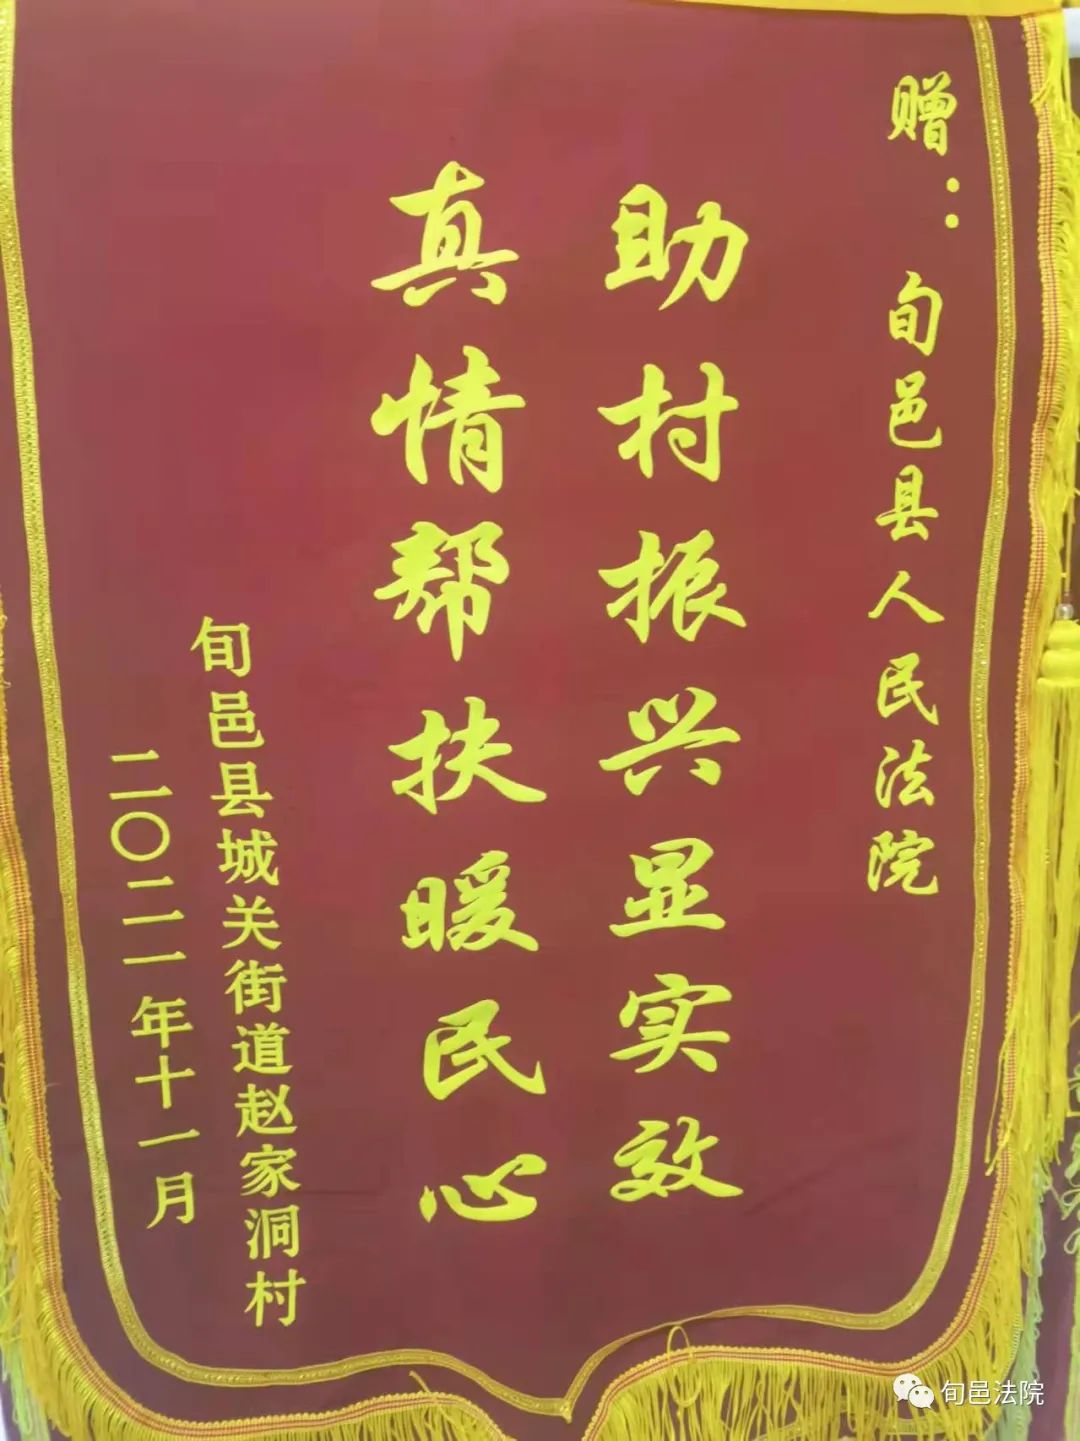 赠：旬邑县人民法院
助村振兴显实效
真情帮扶暖民心
旬邑县城关街道赵家洞村
二〇二一年十一月
旬邑法院